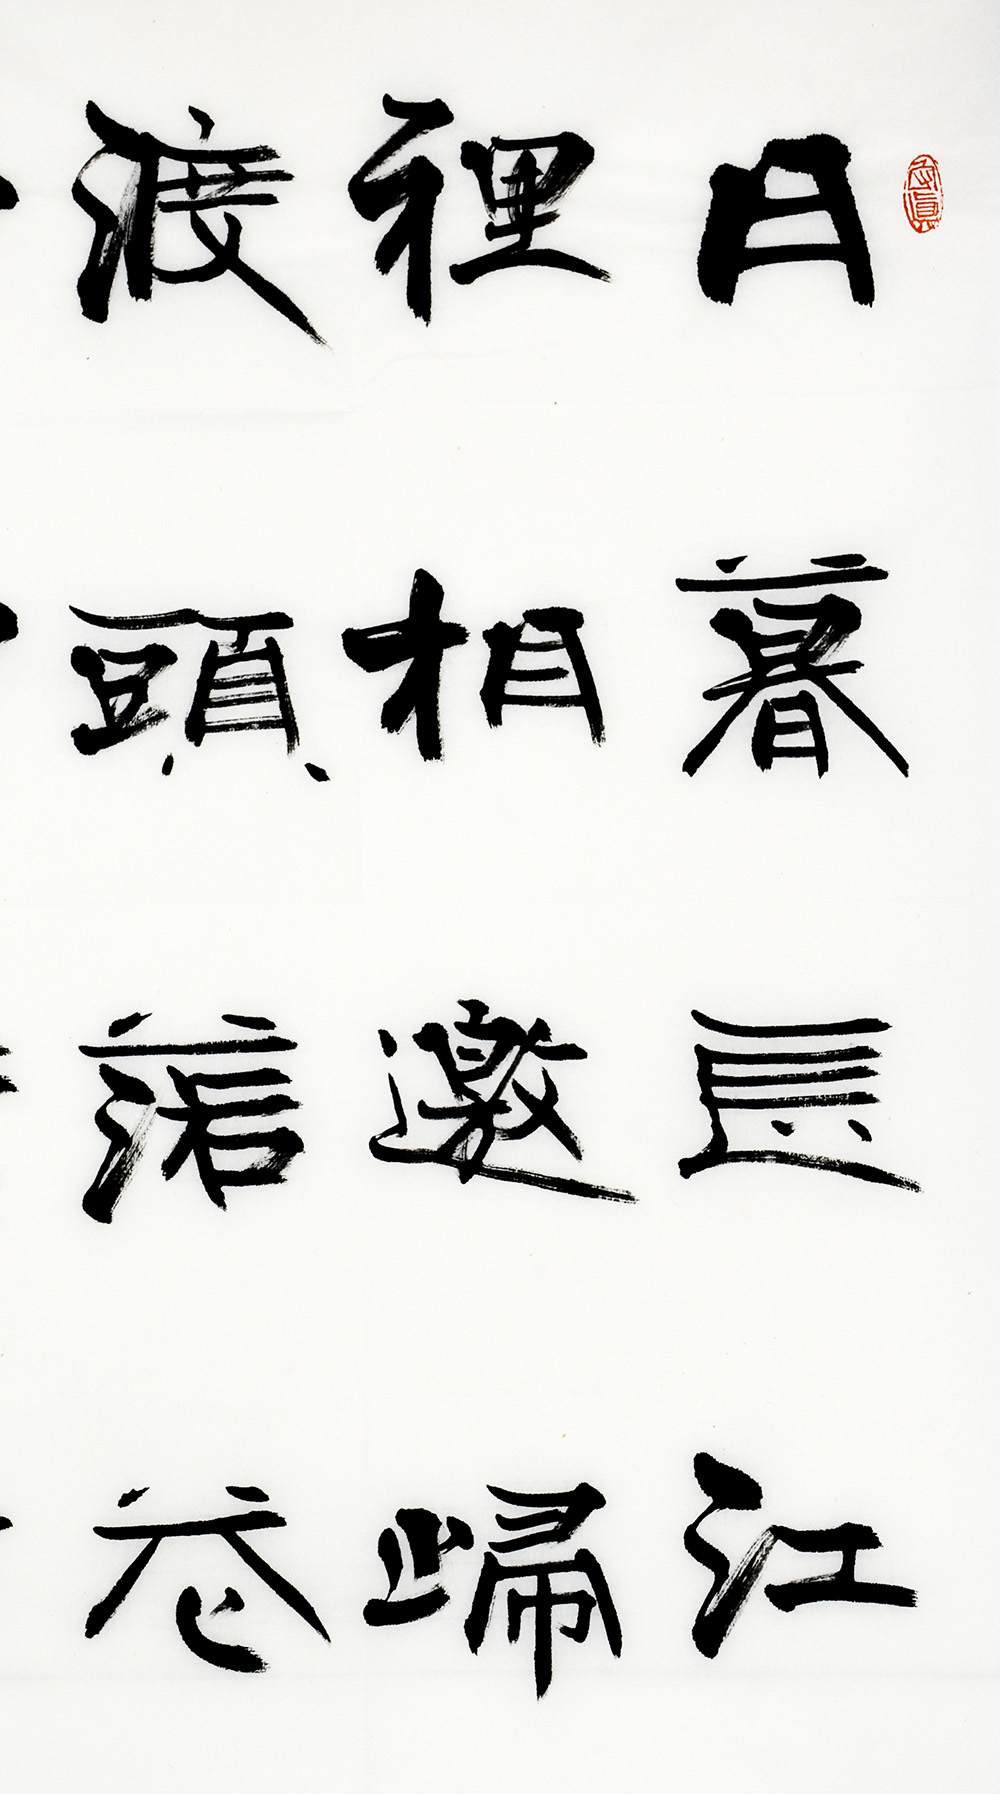 日暮長江
裡相邀歸
渡頭落花